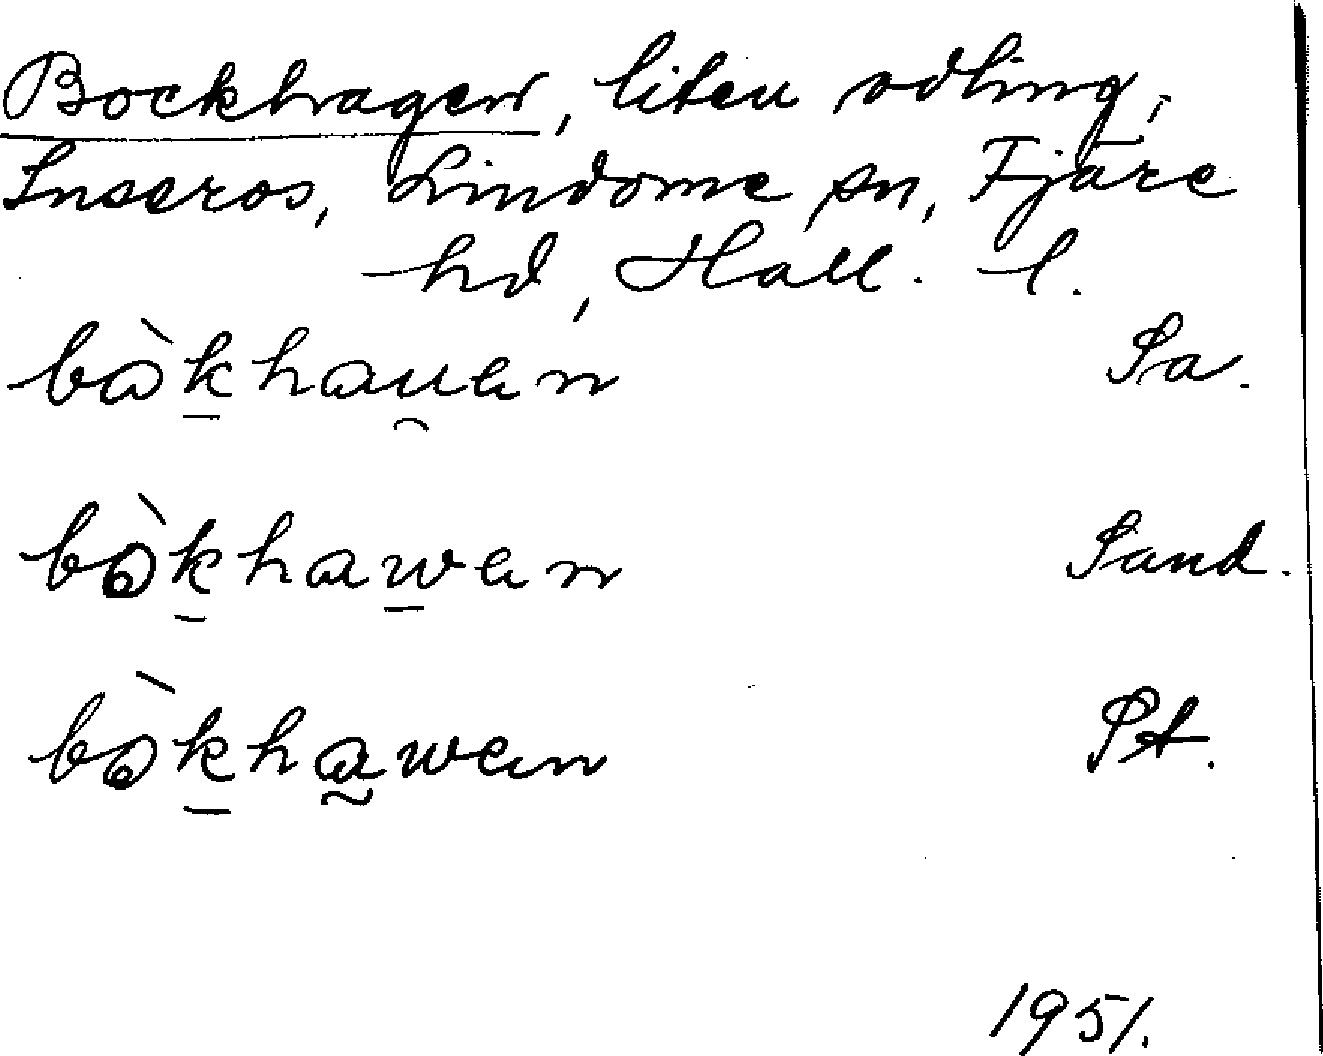 Bockhagen, liten odling,
Inseros, Lindome sn, Fjäre
hd, Hall. l.
bòkhau̯en Sa.
bòkhawen Sand.
bòkha̰wen Pt.
1951.